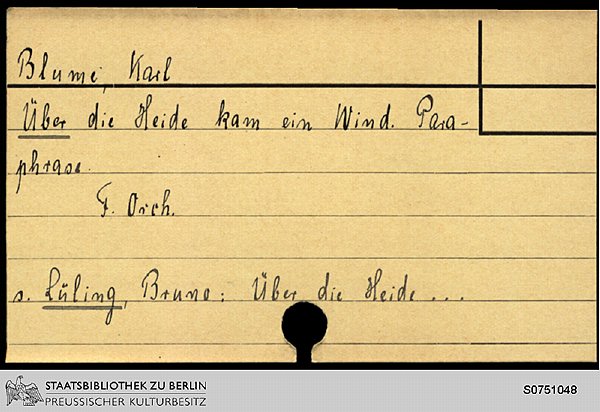 Blume, Karl
Über die Heide kam ein Wind. Para-
phrase.
F. Orch.
s. Lüling, Bruno: Über die Heide ...
STAATSBIBLIOTHEK ZU BERLIN
PREUSSISCHER KULTURBESITZ
S0751048